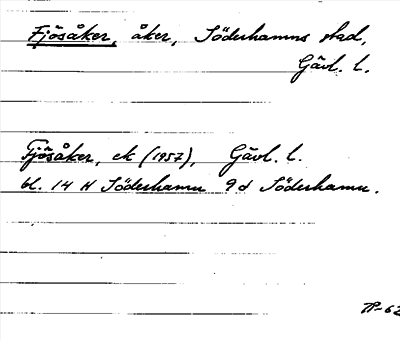 Fjösåker, åker, Söderhamns stad,
Gävl. l.
Fjösåker, ek (1957), Gävl. l.
bl. 14 H Söderhamn 9 d Söderhamn.